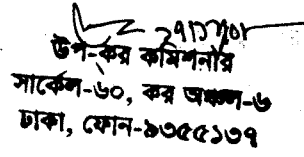 উপ-কর কমিশনার
সার্কেল-৬০, কর অঞ্চল-৬
ঢাকা, ফোন-৯৩৫৫১৩৭